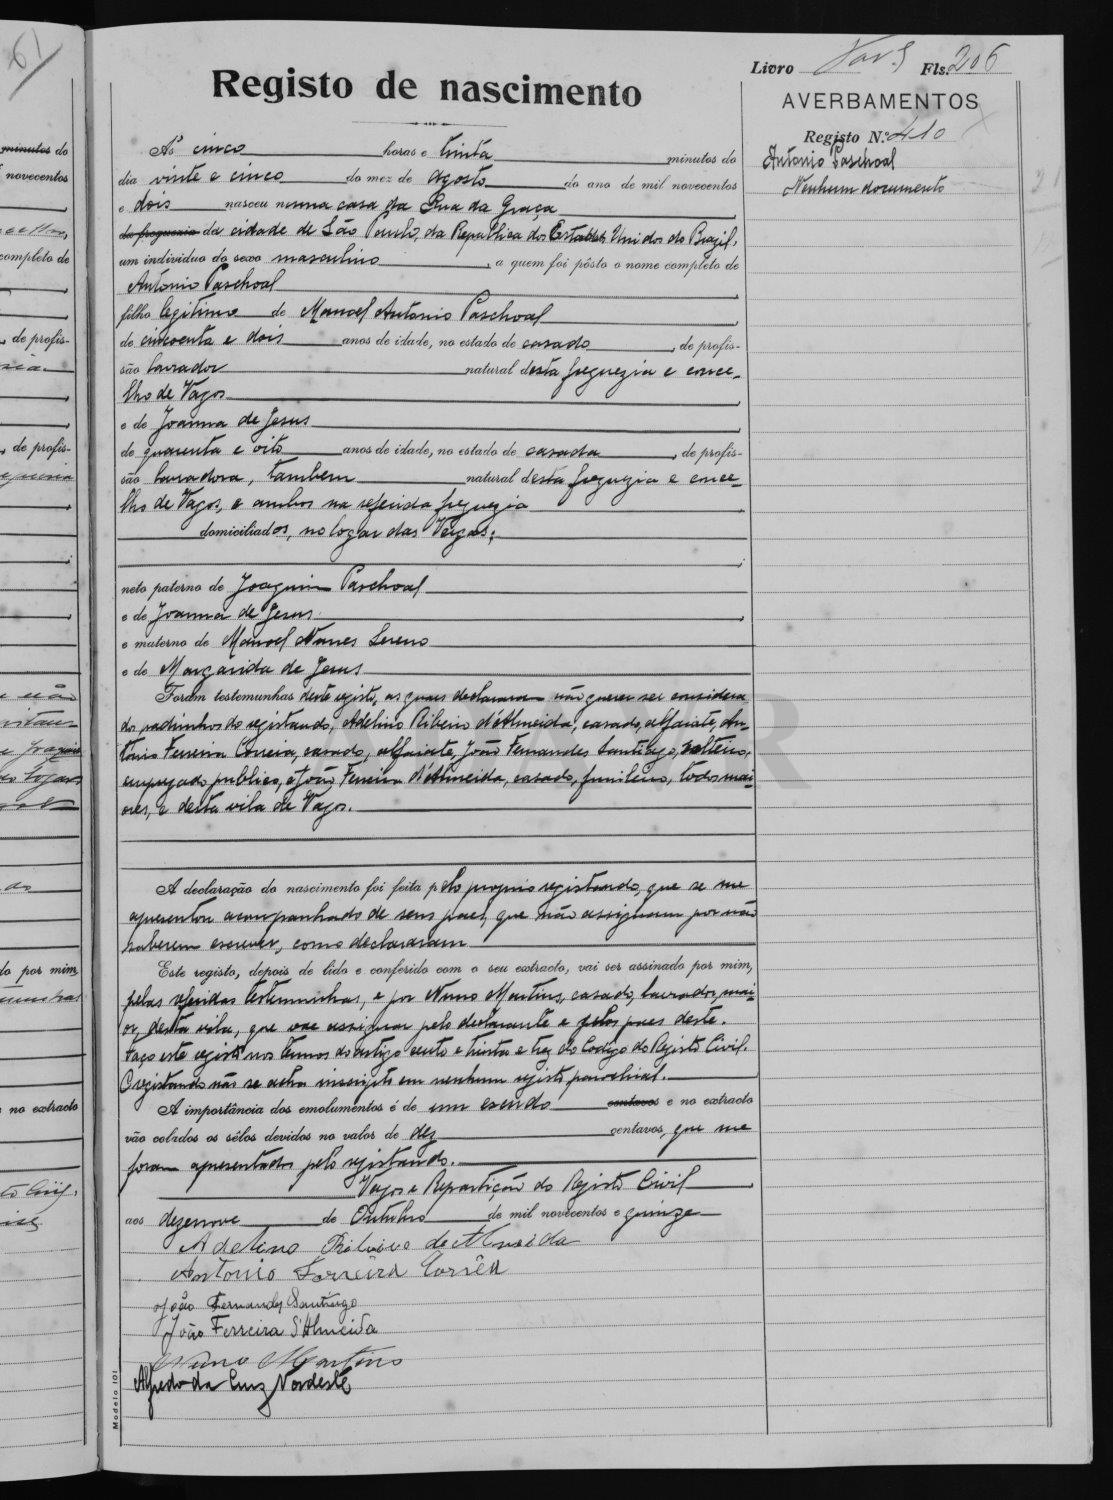 61
Livro Nov. 9 Fls. 206
Registo de nascimento
AVERBAMENTOS
Registo N.º 410
Antonio Paschoal
Nenhum documento
Ás cinco horas e trinta minutos do
dia vinte e cinco do mez de Agosto do ano de mil novecentos
e dois nasceu numa casa da Rua da Graça
da freguezia da cidade de São Paulo, da Republica dos Estados Unidos do Brazil,
um individuo do sexo masculino, a quem foi pôsto o nome completo de
Antonio Paschoal
filho legitimo de Manoel Antonio Paschoal
de cincoenta e dois anos de idade, no estado de casado, de profis-
são lavrador natural desta freguezia e conce-
lho de Vagos
e de Joanna de Jesus
de quarenta e oito anos de idade, no estado de casada, de profis-
são lavradora, tambem natural desta freguezia e conce-
lho de Vagos, e ambos na referida freguezia
domiciliados, no logar das Vergas;
neto paterno de Joaquim Paschoal
e de Joanna de Jesus
e materno de Manoel Nunes Sereno
e de Margarida de Jesus
Foram testemunhas deste registo, as quaes declararam não querer ser considera
dos padrinhos do registando, Adelino Ribeiro d'Almeida, casado, alfaiate, An-
tonio Ferreira Correia, casado, alfaiate, João Fernandes Santiago, solteiro,
empregado publico, e João Ferreira d'Almeida, casado, funileiro, todos mai-
ores, e desta vila de Vagos.
A declaração do nascimento foi feita pelo proprio registando, que se me
apresentou acompanhado de seus paes, que não assignam por não
saberem escrever, como declararam
Este registo, depois de lido e conferido com o seu extracto, vai ser assinado por mim,
pelas referidas testemunhas, e por Nuno Martins, casado, lavrador, mai-
or, desta vila, que vae assignar pelo declarante e pelos paes deste.
Faço este registo nos termos do artigo cento e trinta e trez do Codigo do Registo Civil.
O registando não se acha inscripto em nenhum registo parochial.
A importância dos emolumentos é de um escudo centavos e no extracto
vão colados os sêlos devidos no valor de dez centavos, que me
foram apresentados pelo registando.
Vagos e Repartição do Registo Civil
aos dezenove de Outubro de mil novecentos e quinze
Adelino Ribeiro de Almeida
Antonio Ferreira Corrêa
João Fernandes Santiago
João Ferreira d'Almeida
Nuno Martins
Alfredo da Cruz Nordeste
Modelo 101